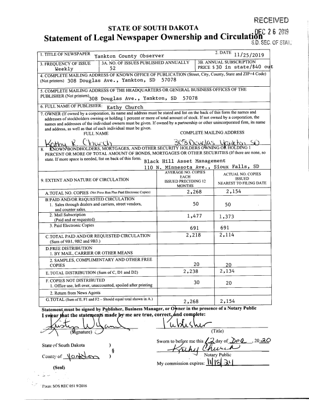 RECEIVED
DEC 26 2019
S.D. SEC. OF STATE
STATE OF SOUTH DAKOTA
Statement of Legal Newspaper Ownership and Circulation
1. TITLE OF NEWSPAPER
Yankton County Observer
2. DATE 11/25/2019
3. FREQUENCY OF ISSUE
Weekly
3A. NO. OF ISSUES PUBLISHED ANNUALLY
52
3B. ANNUAL SUBSCRIPTION
PRICE $30 in state/$40 out
4. COMPLETE MAILING ADDRESS OF KNOWN OFFICE OF PUBLICATION (Street, City, County, State and ZIP+4 Code)
(Not printers) 308 Douglas Ave., Yankton, SD 57078
5. COMPLETE MAILING ADDRESS OF THE HEADQUARTERS OR GENERAL BUSINESS OFFICES OF THE
PUBLISHER (Not printers)
308 Douglas Ave., Yankton, SD 57078
6. FULL NAME OF PUBLISHER: Kathy Church
7. OWNER (If owned by a corporation, its name and address must be stated and list on the back of this form the names and
addresses of stockholders owning or holding 1 percent or more of total amount of stock. If not owned by a corporation, the
names and addresses of the individual owners must be given. If owned by a partnership or other unincorporated firm, its name
and address, as well as that of each individual must be given.
FULL NAME
COMPLETE MAILING ADDRESS
Kathy K Church
308 Douglas Yankton SD
8. KNOWN BONDHOLDERS, MORTGAGES, AND OTHER SECURITY HOLDERS OWNING OR HOLDING 1
PERCENT OR MORE OF TOTAL AMOUNT OF BONDS, MORTGAGES OR OTHER SECURITIES (If there are none, so
state. If more space is needed, list on back of this form.
Black Hill Asset Management
110 N. Minnesota Ave., Sioux Falls, SD
9. EXTENT AND NATURE OF CIRCULATION
AVERAGE NO. COPIES
EACH
ISSUED PRECEDING 12
MONTHS
ACTUAL NO. COPIES
ISSUED
NEAREST TO FILING DATE
A. TOTAL NO. COPIES (Net Press Run Plus Paid Electronic Copies)
2,268
2,154
B. PAID AND/OR REQUESTED CIRCULATION
1. Sales through dealers and carriers, street vendors,
and counter sales
50
50
2. Mail Subscription
(Paid and/or requested)
1,477
1,373
3. Paid Electronic Copies
691
691
C. TOTAL PAID AND/OR REQUESTED CIRCULATION
(Sum of 9B1, 9B2 and 9B3.)
2,218
2,114
D. FREE DISTRIBUTION
1. BY MAIL, CARRIER OR OTHER MEANS
2. SAMPLES, COMPLIMENTARY AND OTHER FREE
COPIES
20
20
E. TOTAL DISTRIBUTION (Sum of C, D1 and D2)
2,238
2,134
F. COPIES NOT DISTRIBUTED
1. Office use, left over, unaccounted, spoiled after printing
30
20
2. Return from News Agents
G. TOTAL (Sum of E, F1 and F2 - Should equal total shown in A.)
2,268
2,154
Statement must be signed by Publisher, Business Manager, or Owner in the presence of a Notary Public
I swear that the statements made by me are true, correct, and complete:
Publisher
(Signature)
(Title)
State of South Dakota
County of Yankton
(Seal)
Sworn to before me this
day of Dec
Kathy Church
Notary Public
My commission expires: